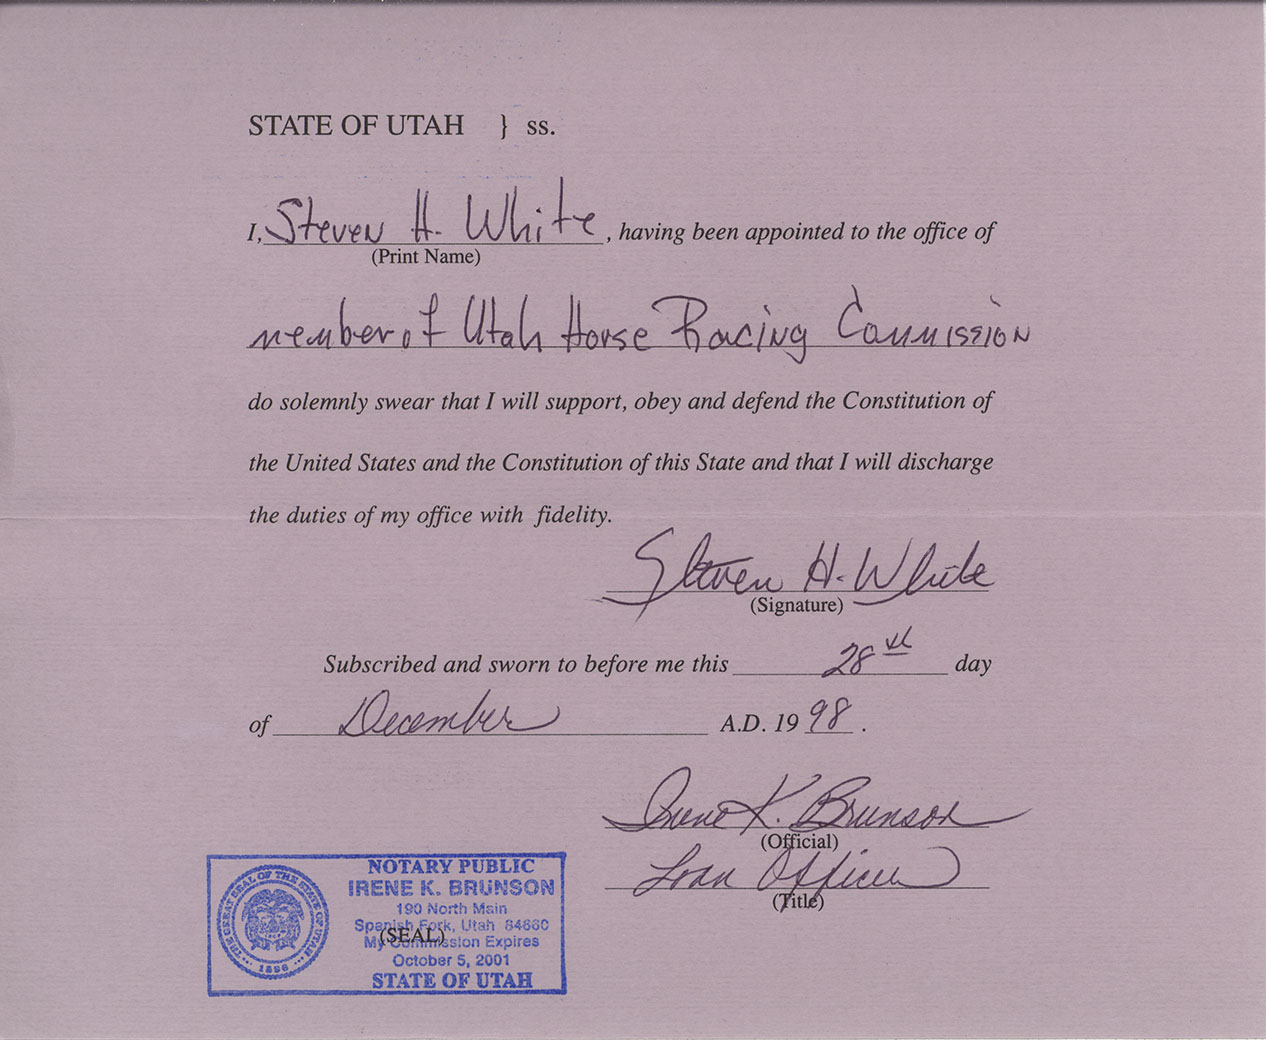 STATE OF UTAH } ss.
I, Steven H. White, having been appointed to the office of
(Print Name)
member of Utah Horse Racing Commission
do solemnly swear that I will support, obey and defend the Constitution of
the United States and the Constitution of this State and that I will discharge
the duties of my office with fidelity.
Steven H. White
(Signature)
Subscribed and sworn to before me this 28th day
of December A.D. 1998.
Irene K. Brunson
(Official)
Loan Officer
(Title)
THE GREAT SEAL OF THE STATE OF UTAH
1896
NOTARY PUBLIC
IRENE K. BRUNSON
190 North Main
Spanish Fork, Utah 84660
(SEAL)
My Commission Expires
October 5, 2001
STATE OF UTAH